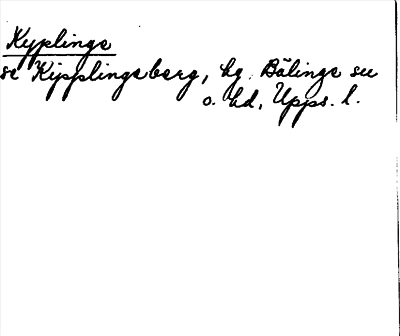 Kyplinge
se Kipplingeberg, hg. Bälinge sn
o. hd, Upps. l.